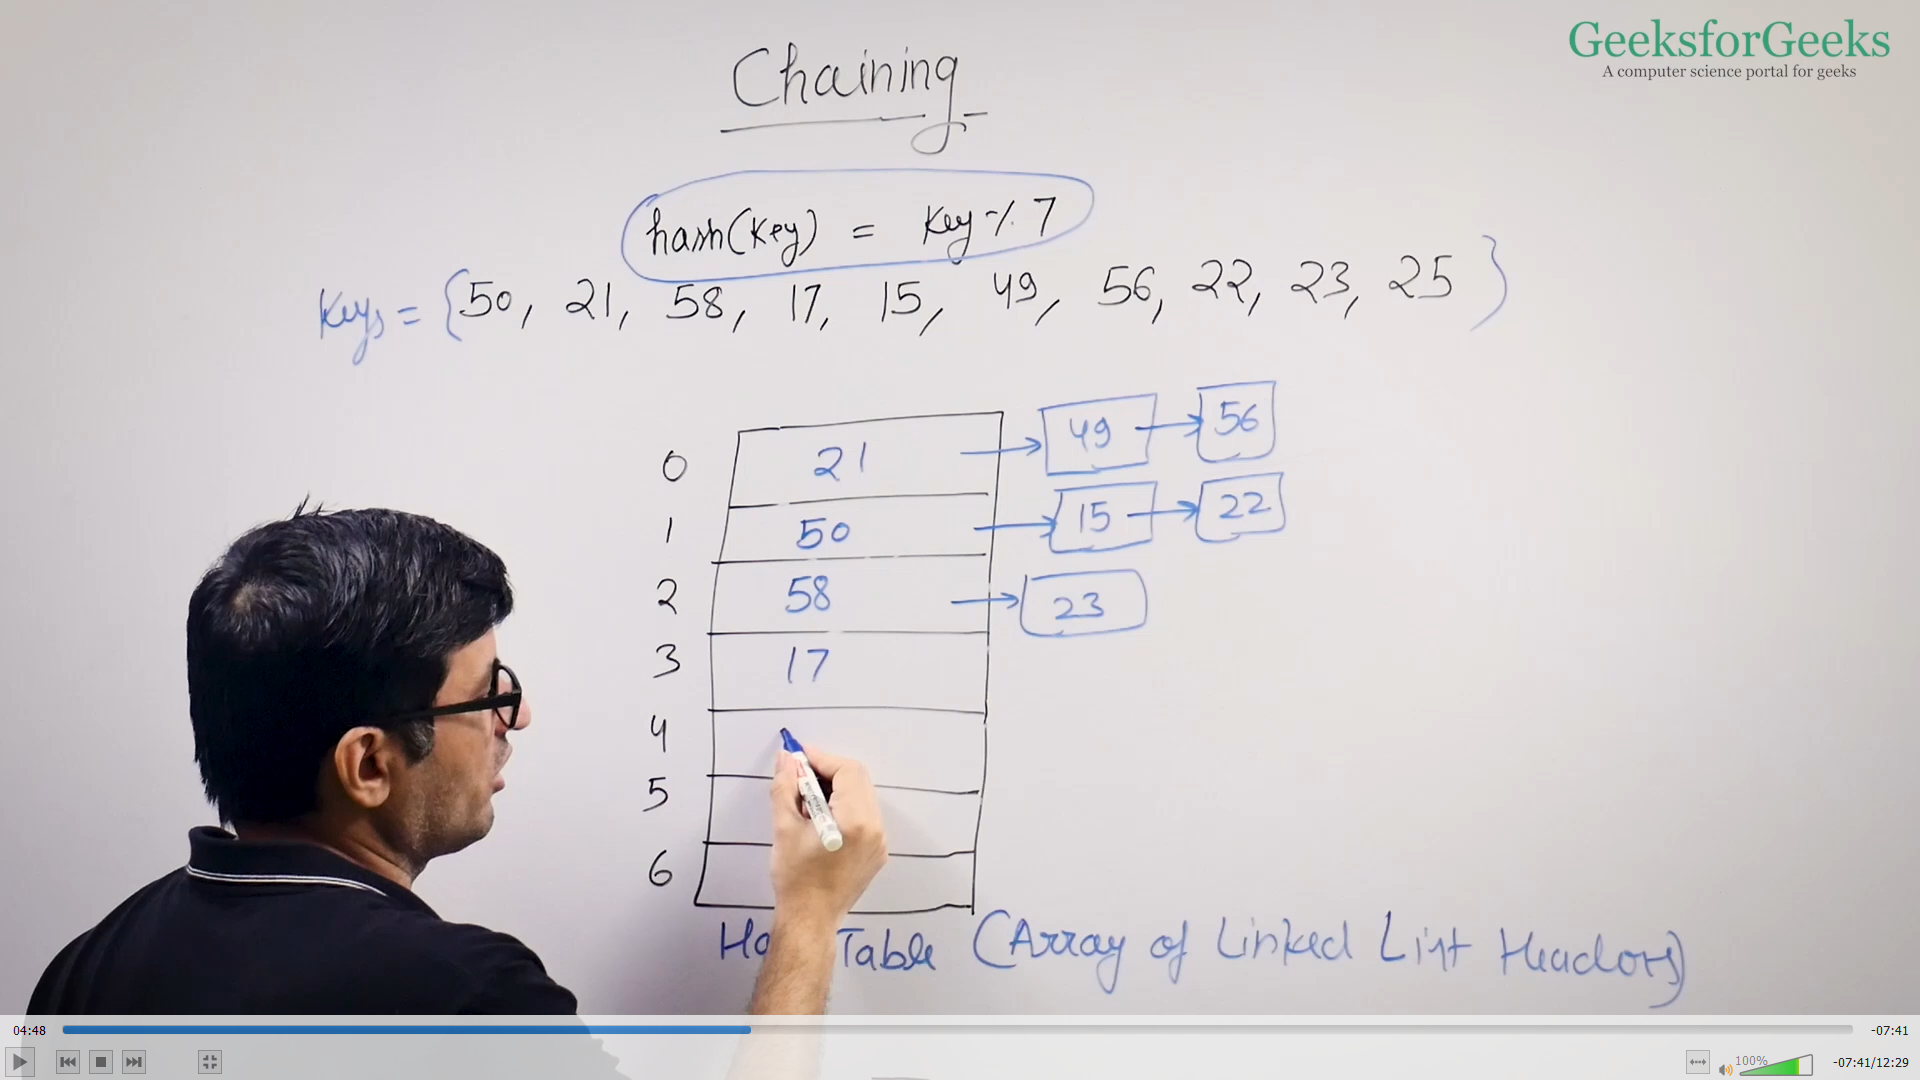 GeeksforGeeks
A computer science portal for geeks
Chaining
hash(Key) = Key % 7
Keys = {50, 21, 58, 17, 15, 49, 56, 22, 23, 25}
0 21 → 49 → 56
1 50 → 15 → 22
2 58 → 23
3 17
4
5
6
Table (Array of Linked List Headers)
04:48 -07:41
100% -07:41/12:29